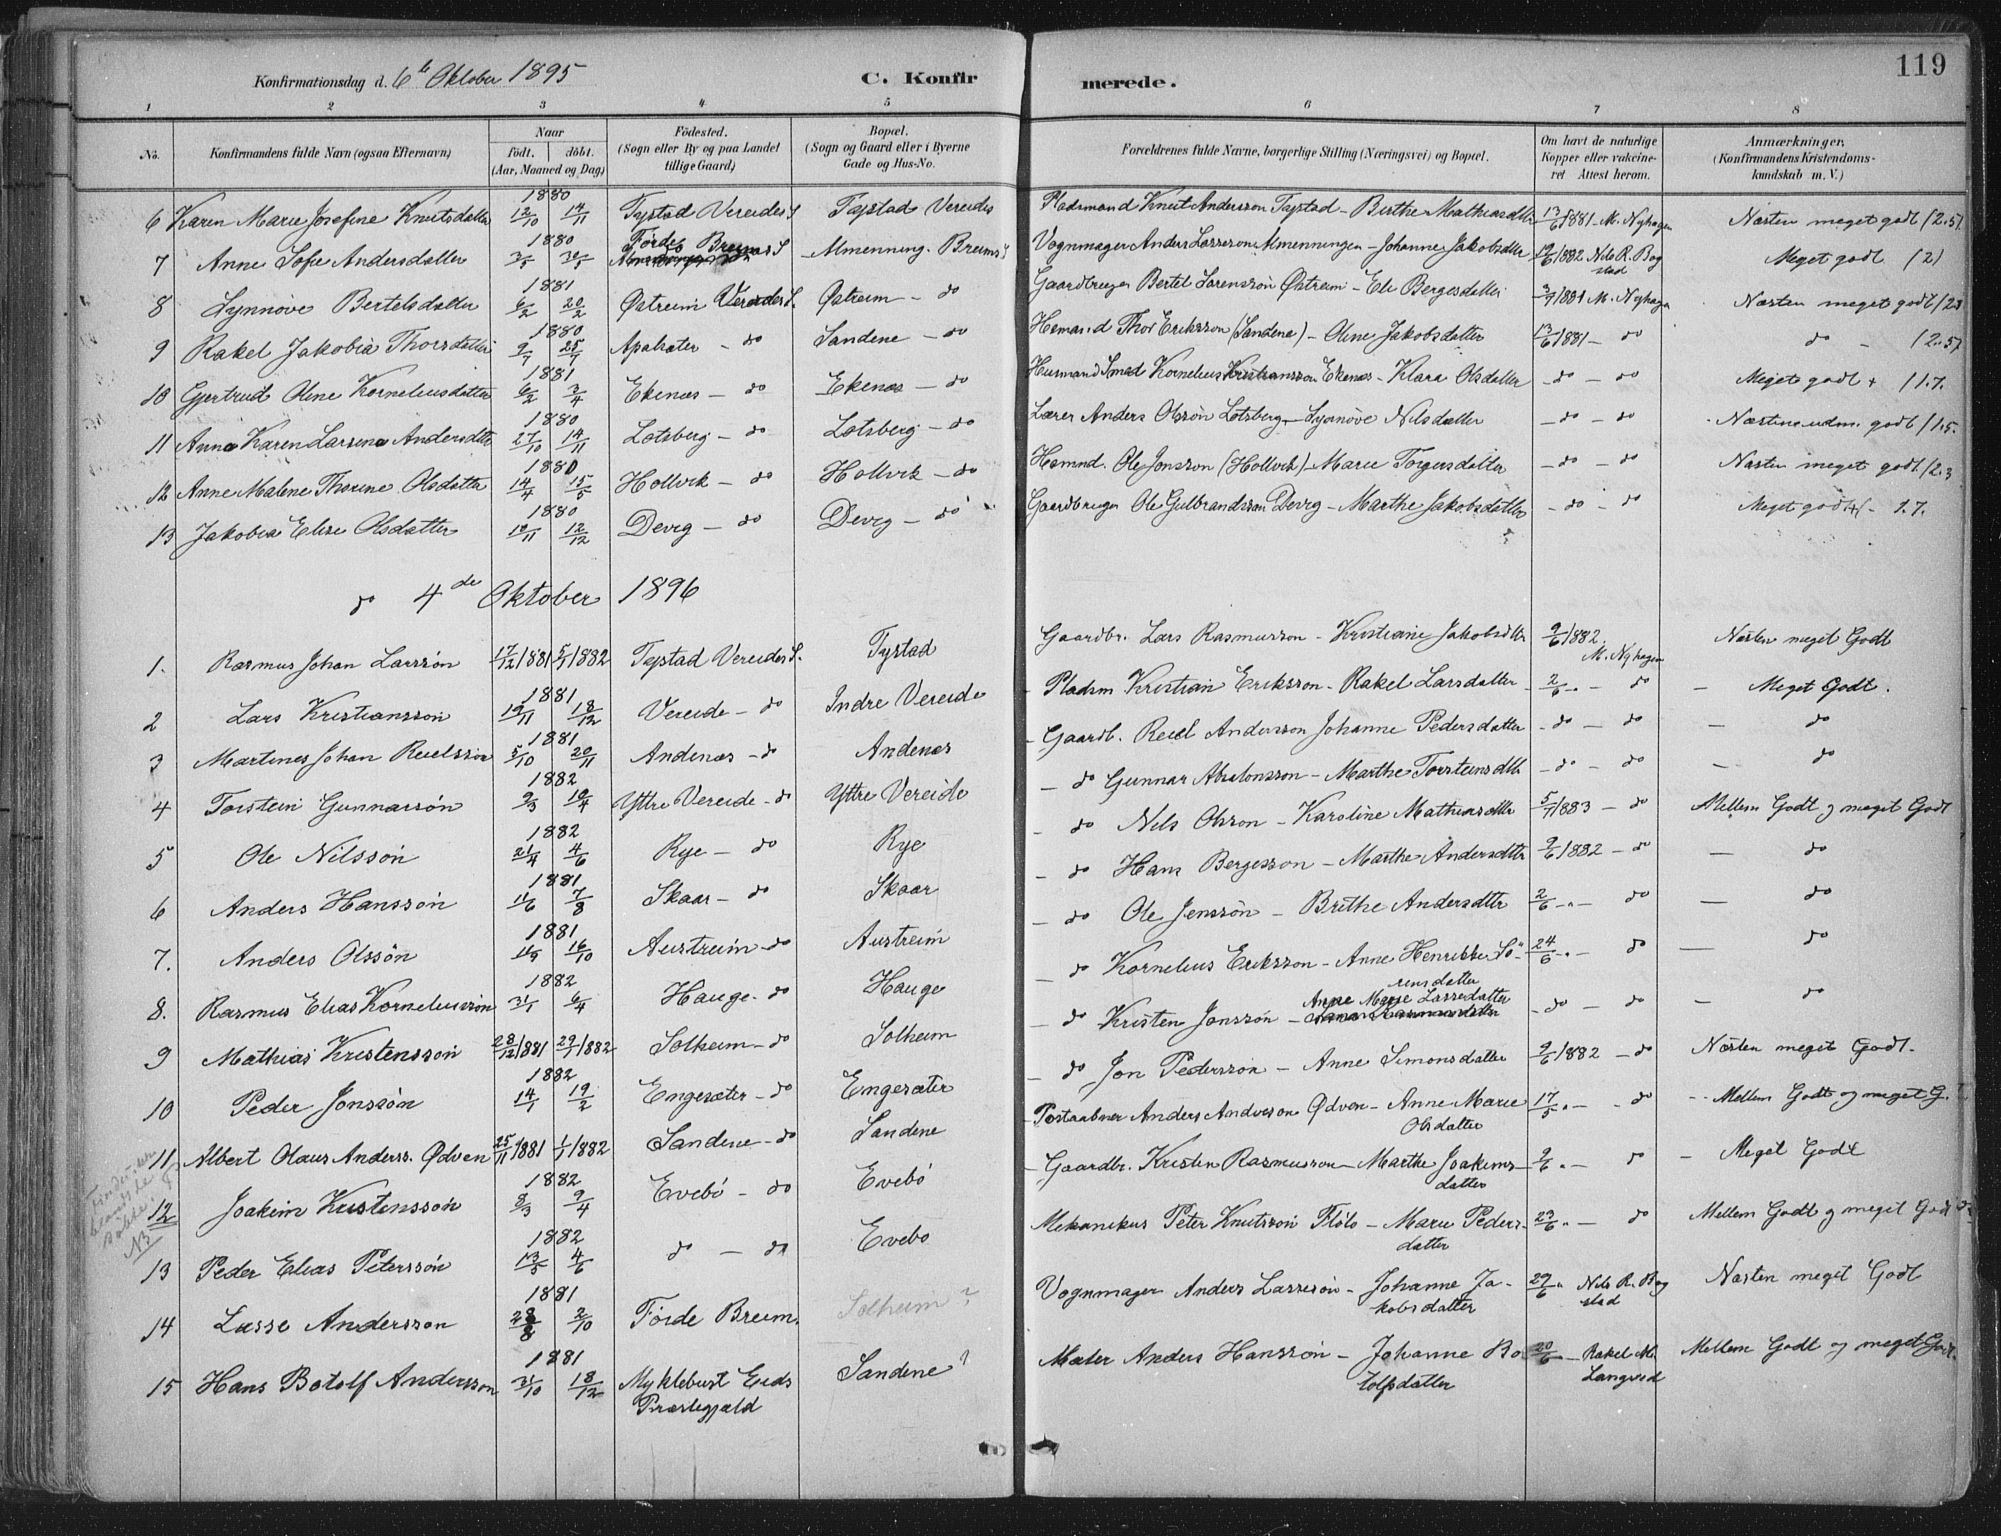 119
Konfirmationsdag d. 6te Oktober 1895
C. Konfirmerede.
1 2 3 4 5 6 7 8
No. Konfirmandens fulde Navn (ogsaa Efternavn) Naar Födt. döbt. (Aar, Maaned og Dag) Födested. (Sogn eller By og paa Landet tillige Gaard) Bopæl. (Sogn og Gaard eller i Byerne Gade og Hus-No. Forældrenes fulde Navne, borgerlige Stilling (Næringsvei) og Bopæl. Om havt de naturlige Kopper eller vakcineret Attest herom. Anmærkninger, (Konfirmandens Kristendomskundskab m. V.)
6 Karen Marie Josefine Knutsdatter 1880 12/10 14/11 Tystad Vereides S Tystad Vereides Pladsmand Knut Anderssøn Tystad - Birthe Mathiasdtter 13/6 1881 - M. Nyhagen Næsten meget godt (2.5)
7 Anne Sofie Andersdatter 1880 3/5 30/5 Førde Breims S Almenning. Breims S Vognmager Anders Lassesøn Almenningen - Johanne Jakobsdatter 19/6 1882 Nils R. Bogstad Meget godt (2)
8 Synnøve Bertelsdatter 1881 6/2 20/2 Østreim Vereides S. Østreim - do Gaardbruger Bertel Sørenssøn Østreim - Eli Bergesdatter M. Nyhagen Næsten meget godt
9 Rakel Jakobia Thorsdatter 1880 9/7 25/7 Apalsæter - do Sandene - do Hsmand Thor Erikssøn (Sandene) - Oline Jakobsdatter 13/6 1881 - do do - (2.5)
10 Gjertrud Oline Korneliusdatter 1881 6/2 3/4 Ekenæs - do Ekenæs - do Husmand Smed Kornelius Kristianssøn Ekenæs - Klara Olsdatter - do - do Meget godt + (1.7.
11 Anna Karen Larsine Andersdtter 1880 27/10 14/11 Lotsberg - do Lotsberg - do Lærer Anders Olssøn Lotsberg - Synnøve Nilsdatter - do - do Næsten udm. godt (1.5.
12 Anne Malene Thorine Olsdatter 1880 14/4 15/5 Hollvik - do Hollvik - do Hsmnd. Ole Jonssøn (Hollvik) - Marie Torgersdatter - do - do Næsten meget godt (2.3
13 Jakobia Elise Olsdatter 1880 10/11 12/12 Devig - do Devig - do Gaardbruger Ole Gulbrandssøn Devig - Marthe Jakobsdatter - do - do Meget godt + - 1.7.
do 4de Oktober 1896
1. Rasmus Johan Larssøn 17/12 1881 5/1 1882 Tystad Vereides S. Tystad Gaardbr. Lars Rasmussøn - Kristiane Jakobsdtter 9/6 1882. M. Nyhagen Næsten meget Godt
2 Lars Kristianssøn 1881 19/11 18/12 Vereide - do Indre Vereide - Pladsm Kristian Erikssøn - Rakel Larsdatter 2/6 " - do - Meget Godt.
3 Martines Johan Reielssøn 1881 5/10 20/11 Andenæs - do Andenæs - Gaardb. Reiel Anderssøn Johanne Pedersdatter - do - do - do
4 Torstein Gunnarssøn 1882 9/3 10/4 Yttre Vereide - do Yttre Vereide - do Gunnar Absalonssøn - Marthe Torsteinsdtt - do - do do
5 Ole Nilssøn 1882 21/4 4/6 Rye - do Rye - do Nils Olssøn - Karoline Mathiasdtter 5/7 1883 - do Mellem Godt og meget Godt
6 Anders Hanssøn 1881 11/6 7/8 Skaar - do Skaar - do Hans Bergessøn - Marthe Andersdtter 9/6 1882 - do - do
7. Anders Olssøn 1881 16/10 Austreim - do Austreim - do Ole Jenssøn - Brithe Andersdtter 2/6 " - do - do
8. Rasmus Elias Korneliussøn 1882 31/1 6/4 Hauge - do Hauge - do Kornelius Erikssøn - Anne Henrikke Sørensdatter 24/6 " - do - do
9 Mathias Kristenssøn 28/12 1881 29/1 1882 Solheim - do Solheim - do Kristen Jonssøn - Anne Marie Lassedatter - do - do - do
10 Peder Jonssøn 1882 14/1 19/2 Engesæter - do Engesæter - do Jon Pederssøn - Anne Simonsdatter 9/6 1882 - do Næsten meget Godt.
11 Albert Olaus Anderss. Ødven 25/11 1881 1/1 1882 Sandene - do Sandene Postaabner Anders Andersøn Ødven - Anne Marie Olsdatter 17/5 " - - do - Mellem Godt og meget G.
12 Joakim Kristenssøn 1882 8/3 9/4 Evebø - do Evebø - Gaardbr. Kristen Rasmussøn - Marthe Joakimsdatter 9/6 " - do - Meget Godt
NB
13 Peder Elias Peterssøn 1882 13/5 4/6 do - do Evebø Mekanikus Peter Knutssøn Fløtø - Marie Pedersdatter 23/6 " - do Mellem Godt og meget Godt
14 Lasse Anderssøn 1881 28/8 2/10 Førde Breim. Solheim? Vognmager Anders Lassesøn - Johanne Jakobsdatter 29/6 " Nils R. Bogstad Næsten meget Godt
15 Hans Botolf Anderssøn 1881 31/10 18/12 Myklebust Eids Præstegjæld Sandene? Maler Anders Hanssøn - Johanne Botolfsdatter 20/6 - Rakel M. Langved Mellem Godt og meget Godt.